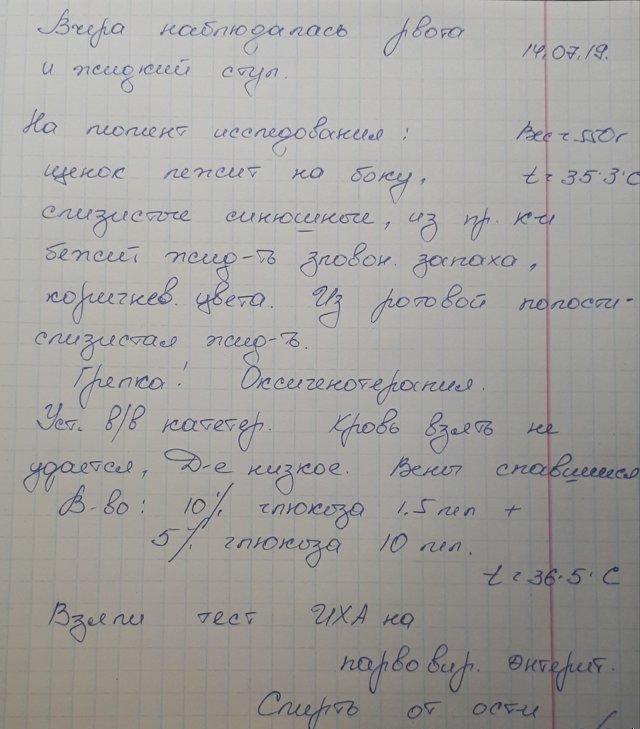 Вчера наблюдалась рвота
14.07.19.
и жидкий стул.
На момент исследования:
Вес = 550г
щенок лежит на боку,
t = 35.3°C
слизистые синюшные, из пр. к-и
бежит жид-ть зловон. запаха,
коричнев. цвета. Из ротовой полости-
слизистая жид-ть.
Грелка! Оксигенотерапия.
Уст. в/в катетер. Кровь взять не
удается, Д-е низкое. Вены спавшиеся
В-во: 10% глюкоза 1.5 мл +
5% глюкоза 10 мл.
t = 36.5°C
Взяли тест ИХА на
парвовир. энтерит.
Смерть от ости